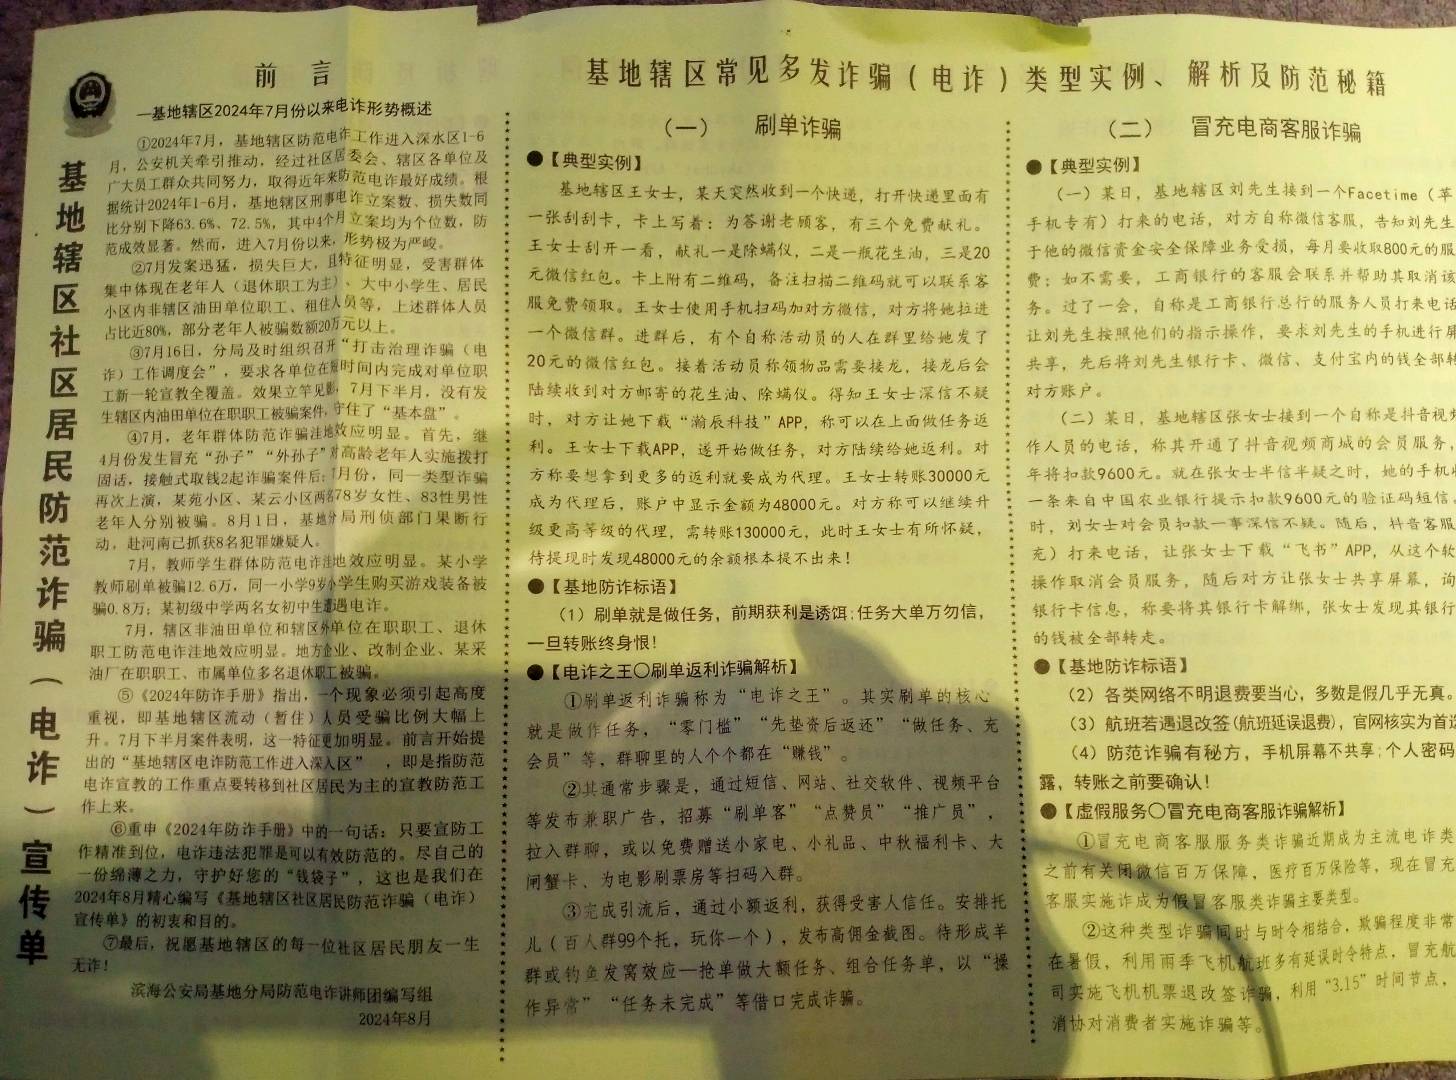 基地辖区社区居民防范诈骗（电诈）宣传单
前 言
—基地辖区2024年7月份以来电诈形势概述
①2024年7月，基地辖区防范电诈工作进入深水区1-6
月，公安机关牵引推动，经过社区居委会、辖区各单位及
广大员工群众共同努力，取得近年来防范电诈最好成绩。根
据统计2024年1-6月，基地辖区刑事电诈立案数、损失数同
比分别下降63.6%、72.5%，其中4个月立案均为个位数，防
范成效显著。然而，进入7月份以来，形势极为严峻。
②7月发案迅猛，损失巨大，且特征明显，受害群体
集中体现在老年人（退休职工为主）、大中小学生、居民
小区内非辖区油田单位职工、租住人员等，上述群体人员
占比近80%，部分老年人被骗数额20万元以上。
③7月16日，分局及时组织召开“打击治理诈骗（电
诈）工作调度会”，要求各单位在短时间内完成对单位职
工新一轮宣教全覆盖。效果立竿见影，7月下半月，没有发
生辖区内油田单位在职职工被骗案件，守住了“基本盘”。
④7月，老年群体防范诈骗洼地效应明显。首先，继
4月份发生冒充“孙子”“外孙子”对高龄老年人实施拨打
固话，接触式取钱2起诈骗案件后：7月份，同一类型诈骗
再次上演，某苑小区、某云小区两名78岁女性、83性男性
老年人分别被骗。8月1日，基地分局刑侦部门果断行
动，赴河南已抓获8名犯罪嫌疑人。
7月，教师学生群体防范电诈洼地效应明显。某小学
教师刷单被骗12.6万，同一小学9岁小学生购买游戏装备被
骗0.8万；某初级中学两名女初中生遭遇电诈。
7月，辖区非油田单位和辖区外单位在职职工、退休
职工防范电诈洼地效应明显。地方企业、改制企业、某采
油厂在职职工、市属单位多名退休职工被骗。
⑤《2024年防诈手册》指出，一个现象必须引起高度
重视，即基地辖区流动（暂住）人员受骗比例大幅上
升。7月下半月案件表明，这一特征更加明显。前言开始提
出的“基地辖区电诈防范工作进入深入区”，即是指防范
电诈宣教的工作重点要转移到社区居民为主的宣教防范工
作上来。
⑥重申《2024年防诈手册》中的一句话：只要宣防工
作精准到位，电诈违法犯罪是可以有效防范的。尽自己的
一份绵薄之力，守护好您的“钱袋子”，这也是我们在
2024年8月精心编写《基地辖区社区居民防范诈骗（电诈）
宣传单》的初衷和目的。
⑦最后，祝愿基地辖区的每一位社区居民朋友一生
无诈！
滨海公安局基地分局防范电诈讲师团编写组
2024年8月
基地辖区常见多发诈骗（电诈）类型实例、解析及防范秘籍
（一） 刷单诈骗
●【典型实例】
基地辖区王女士，某天突然收到一个快递，打开快递里面有
一张刮刮卡，卡上写着：为答谢老顾客，有三个免费献礼。
王女士刮开一看，献礼一是除螨仪，二是一瓶花生油，三是20
元微信红包。卡上附有二维码，备注扫描二维码就可以联系客
服免费领取。王女士使用手机扫码加对方微信，对方将她拉进
一个微信群。进群后，有个自称活动员的人在群里给她发了
20元的微信红包。接着活动员称领物品需要接龙，接龙后会
陆续收到对方邮寄的花生油、除螨仪。得知王女士深信不疑
时，对方让她下载“瀚辰科技”APP，称可以在上面做任务返
利。王女士下载APP，遂开始做任务，对方陆续给她返利。对
方称要想拿到更多的返利就要成为代理。王女士转账30000元
成为代理后，账户中显示金额为48000元。对方称可以继续升
级更高等级的代理，需转账130000元，此时王女士有所怀疑，
待提现时发现48000元的余额根本提不出来！
●【基地防诈标语】
（1）刷单就是做任务，前期获利是诱饵；任务大单万勿信，
一旦转账终身恨！
●【电诈之王〇刷单返利诈骗解析】
①刷单返利诈骗称为“电诈之王”。其实刷单的核心
就是做作任务，“零门槛”“先垫资后返还”“做任务、充
会员”等，群聊里的人个个都在“赚钱”。
②其通常步骤是，通过短信、网站、社交软件、视频平台
等发布兼职广告，招募“刷单客”“点赞员”“推广员”，
拉入群聊，或以免费赠送小家电、小礼品、中秋福利卡、大
闸蟹卡、为电影刷票房等扫码入群。
③完成引流后，通过小额返利，获得受害人信任。安排托
儿（百人群99个托，玩你一个），发布高佣金截图。待形成羊
群或钓鱼发窝效应—抢单做大额任务、组合任务单，以“操
作异常”“任务未完成”等借口完成诈骗。
（二） 冒充电商客服诈骗
●【典型实例】
（一）某日，基地辖区刘先生接到一个Facetime（苹
手机专有）打来的电话，对方自称微信客服，告知刘先生
于他的微信资金安全保障业务受损，每月要收取800元的服
费；如不需要，工商银行的客服会联系并帮助其取消该
务。过了一会，自称是工商银行总行的服务人员打来电话
让刘先生按照他们的指示操作，要求刘先生的手机进行屏
共享，先后将刘先生银行卡、微信、支付宝内的钱全部转
对方账户。
（二）某日，基地辖区张女士接到一个自称是抖音视频
作人员的电话，称其开通了抖音视频商城的会员服务，
年将扣款9600元。就在张女士半信半疑之时，她的手机收
一条来自中国农业银行提示扣款9600元的验证码短信。
时，刘女士对会员扣款一事深信不疑。随后，抖音客服
充）打来电话，让张女士下载“飞书”APP，从这个软
操作取消会员服务，随后对方让张女士共享屏幕，询
银行卡信息，称要将其银行卡解绑，张女士发现其银行
的钱被全部转走。
●【基地防诈标语】
（2）各类网络不明退费要当心，多数是假几乎无真。
（3）航班若遇退改签（航班延误退费），官网核实为首选
（4）防范诈骗有秘方，手机屏幕不共享；个人密码
露，转账之前要确认！
●【虚假服务〇冒充电商客服诈骗解析】
①冒充电商客服服务类诈骗近期成为主流电诈类
之前有关闭微信百万保障，医疗百万保险等，现在冒充
客服实施诈成为假冒客服类诈骗主要类型。
②这种类型诈骗同时与时令相结合，欺骗程度非常
在暑假，利用雨季飞机航班多有延误时令特点，冒充航
司实施飞机机票退改签诈骗，利用“3.15”时间节点，
消协对消费者实施诈骗等。